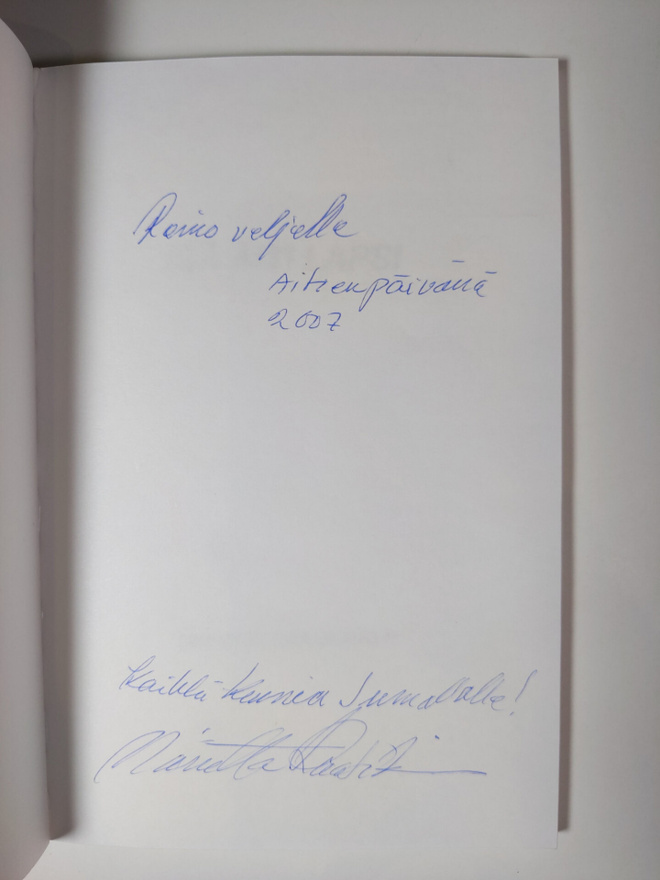 Raino veljelle
Äitienpäivänä
2007
Kaikki kunnia Jumalalle!